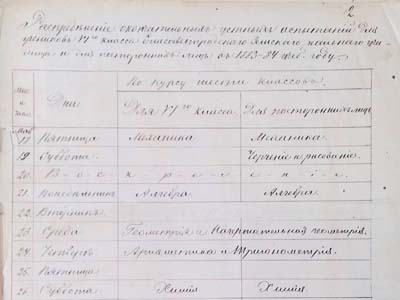 2
Распредѣленіе окончательныхъ устныхъ испытаній для
учениковъ VI го класса Елисаветградскаго Земскаго реальнаго учи-
лища и для постороннихъ лицъ въ 1883-84 учеб. году.
Мѣс. и число
Дни
По курсу шести классовъ
Для VI го класса
Для постороннихъ лицъ
Май
Пятница Механика Механика.
19. Суббота Черченіе и рисованіе.
20. В - о - с - к - р - е - с - е - н - і - е.
21. Понедѣльникъ Алгебра Алгебра.
22. Вторникъ
23. Среда Геометрія и Начертательная геометрія.
24. Четвергъ Ариѳметика и Тригонометрія.
25. Пятница
26. Суббота Химія Химія